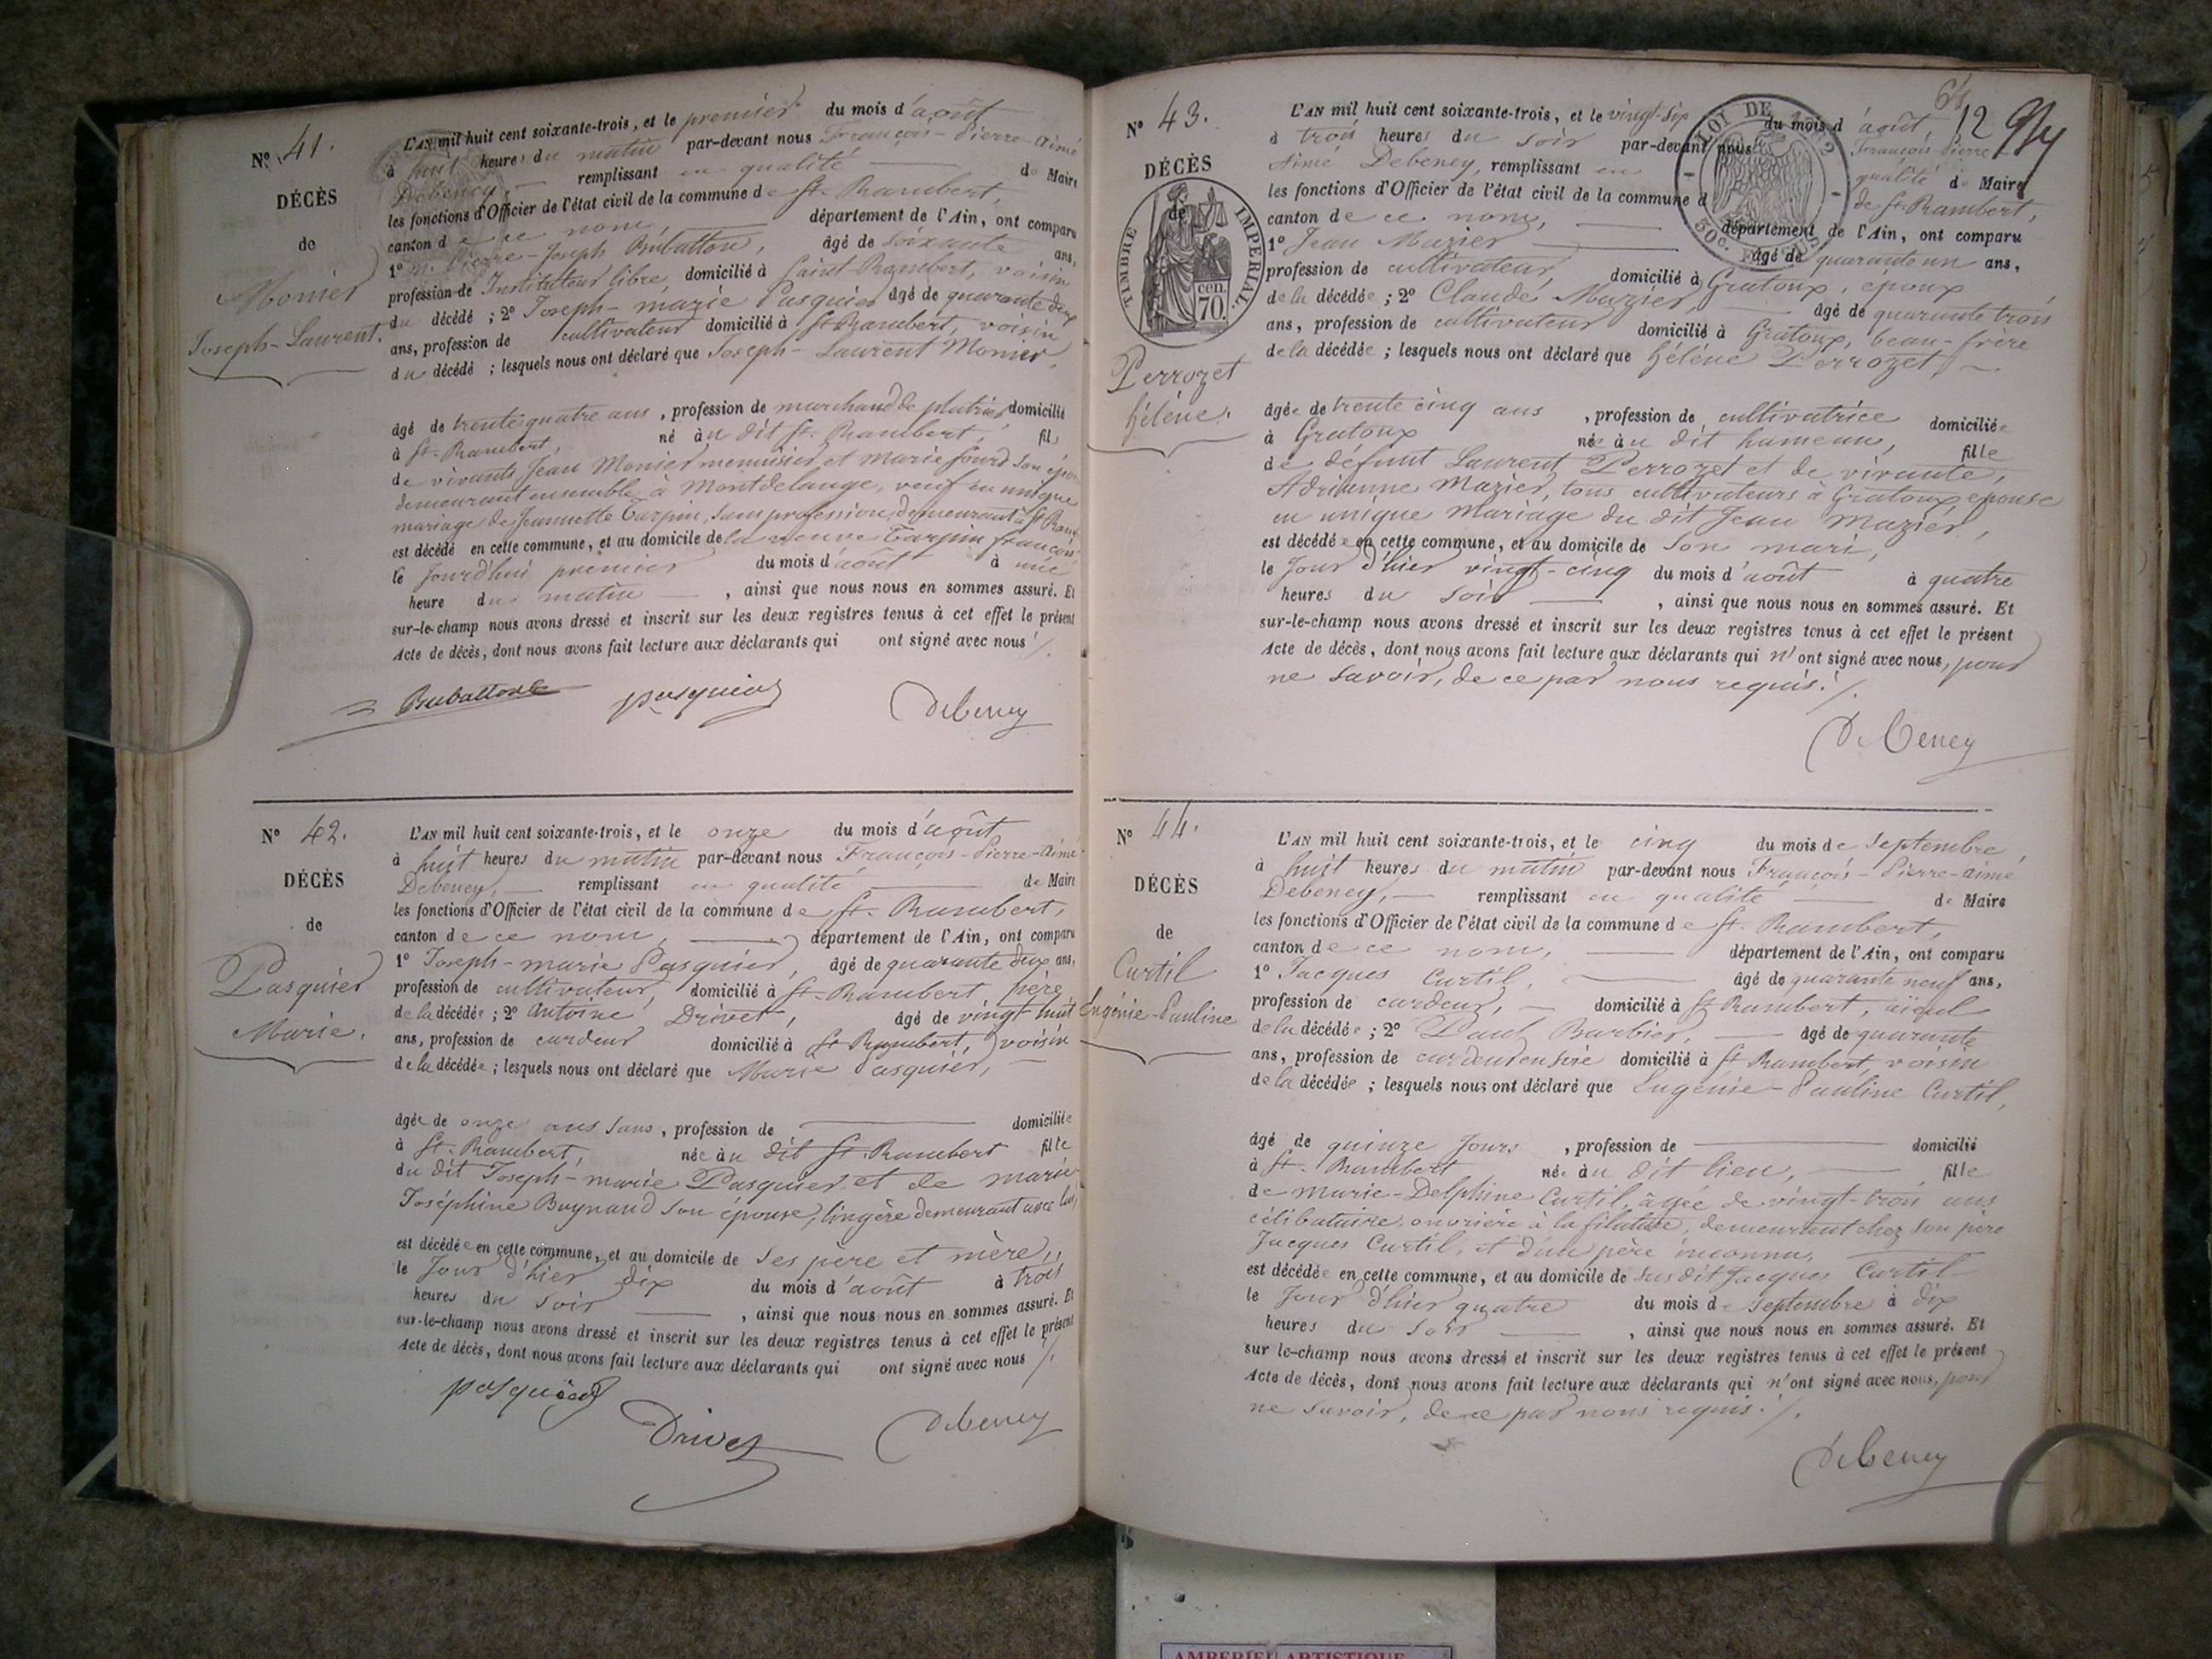 N° 41.
DÉCÈS
de
Monier
Joseph-Laurent.
L'AN mil huit cent soixante-trois, et le premier du mois d'août
à huit heures du matin par-devant nous François-Pierre-Aimé
Debeney, remplissant en qualité de Maire
les fonctions d'Officier de l'état civil de la commune de St. Rambert,
canton de ce nom, département de l'Ain, ont comparu
1° M. Pierre-Joseph Rubatton, âgé de soixante ans,
profession de Instituteur libre, domicilié à Saint-Rambert, voisin
du décédé ; 2° Joseph-marie Pasquier âgé de quarante deux
ans, profession de cultivateur domicilié à St Rambert, voisin
du décédé ; lesquels nous ont déclaré que Joseph-Laurent Monier,
âgé de trente quatre ans, profession de marchand de plâtrier domicilié
à St-Rambert, né au dit St. Rambert, fils
de vivants Jean Monier menuisier et Marie Jourd son
demeurant ensemble à Montdelange, veuf en unique
mariage de Jeannette Carpin, sans profession, demeurant à St
est décédé en cette commune, et au domicile de la veuve Tarpin
le Jourd'hui premier du mois d'août à une
heure du matin, ainsi que nous nous en sommes assuré. Et
sur-le-champ nous avons dressé et inscrit sur les deux registres tenus à cet effet le présent
Acte de décès, dont nous avons fait lecture aux déclarants qui ont signé avec nous /.
Pasquier Debeney
N° 42.
DÉCÈS
de
Pasquier
Marie.
L'AN mil huit cent soixante-trois, et le onze du mois d'août
à huit heures du matin par-devant nous François-Pierre-Aimé
Debeney, remplissant en qualité de Maire
les fonctions d'Officier de l'état civil de la commune de St. Rambert,
canton de ce nom, département de l'Ain, ont comparu
1° Joseph-marie Pasquier, âgé de quarante deux ans,
profession de cultivateur, domicilié à St-Rambert père
de la décédée ; 2° Antoine Drivet, âgé de vingt huit
ans, profession de cardeur domicilié à St Rambert, voisin
de la décédée ; lesquels nous ont déclaré que Marie Pasquier,
âgée de onze ans sans, profession de domiciliée
à St. Rambert, née au dit St. Rambert fille
du dit Joseph-marie Pasquier et de marie
Joséphine Buynand son épouse, lingère demeurant avec lui,
est décédée en cette commune, et au domicile de ses père et mère,
le Jour d'hier dix du mois d'août à trois
heures du soir, ainsi que nous nous en sommes assuré. Et
sur-le-champ nous avons dressé et inscrit sur les deux registres tenus à cet effet le présent
Acte de décès, dont nous avons fait lecture aux déclarants qui ont signé avec nous /.
Pasquier Drivet Debeney
12
N° 43.
DÉCÈS
de
TIMBRE IMPÉRIAL
cen.
70.
LOI DE 1862
50c. EN SUS
Perrozet
Hélène.
L'AN mil huit cent soixante-trois, et le vingt-six du mois d'août,
à trois heures du soir par-devant nous François-Pierre
Aimé Debeney, remplissant en qualité de Maire
les fonctions d'Officier de l'état civil de la commune de St. Rambert,
canton de ce nom, département de l'Ain, ont comparu
1° Jean Mazier âgé de quarante un ans,
profession de cultivateur, domicilié à Gratoux, époux
de la décédée ; 2° Claude Mazier, âgé de quarante trois
ans, profession de cultivateur domicilié à Gratoux, beau-frère
de la décédée ; lesquels nous ont déclaré que Hélène Perrozet,
âgée de trente cinq ans, profession de cultivatrice domiciliée
à Gratoux née au dit hameau, fille
de défunt Laurent Perrozet et de vivante,
Adrienne Mazier, tous cultivateurs à Gratoux, épouse
en unique Mariage du dit Jean Mazier,
est décédée en cette commune, et au domicile de son mari,
le Jour d'hier vingt-cinq du mois d'août à quatre
heures du soir, ainsi que nous nous en sommes assuré. Et
sur-le-champ nous avons dressé et inscrit sur les deux registres tenus à cet effet le présent
Acte de décès, dont nous avons fait lecture aux déclarants qui n'ont signé avec nous, pour
ne savoir, de ce par nous requis. /.
Debeney
N° 44.
DÉCÈS
de
Curtil
Eugénie-Pauline
L'AN mil huit cent soixante-trois, et le cinq du mois de Septembre,
à huit heures du matin par-devant nous François-Pierre-aimé
Debeney, remplissant en qualité de Maire
les fonctions d'Officier de l'état civil de la commune de St. Rambert,
canton de ce nom, département de l'Ain, ont comparu
1° Jacques Curtil, âgé de quarante neuf ans,
profession de cardeur, domicilié à St Rambert, aïeul
de la décédée ; 2° Paul Barbier, âgé de quarante
ans, profession de cardeur en soie domicilié à St Rambert, voisin
de la décédée ; lesquels nous ont déclaré que Eugénie-Pauline Curtil,
âgé de quinze Jours, profession de domicilié
à St. Rambert née au dit lieu, fille
de Marie-Delphine Curtil, âgée de vingt-trois ans
célibataire, ouvrière à la filature, demeurant chez son père
Jacques Curtil, et d'un père inconnu,
est décédée en cette commune, et au domicile de susdit Jacques Curtil
le Jour d'hier quatre du mois de septembre à dix
heures du soir, ainsi que nous nous en sommes assuré. Et
sur-le-champ nous avons dressé et inscrit sur les deux registres tenus à cet effet le présent
Acte de décès, dont nous avons fait lecture aux déclarants qui n'ont signé avec nous, pour
ne savoir, de ce par nous requis. /.
Debeney
AMBERIEU ARTISTIQUE